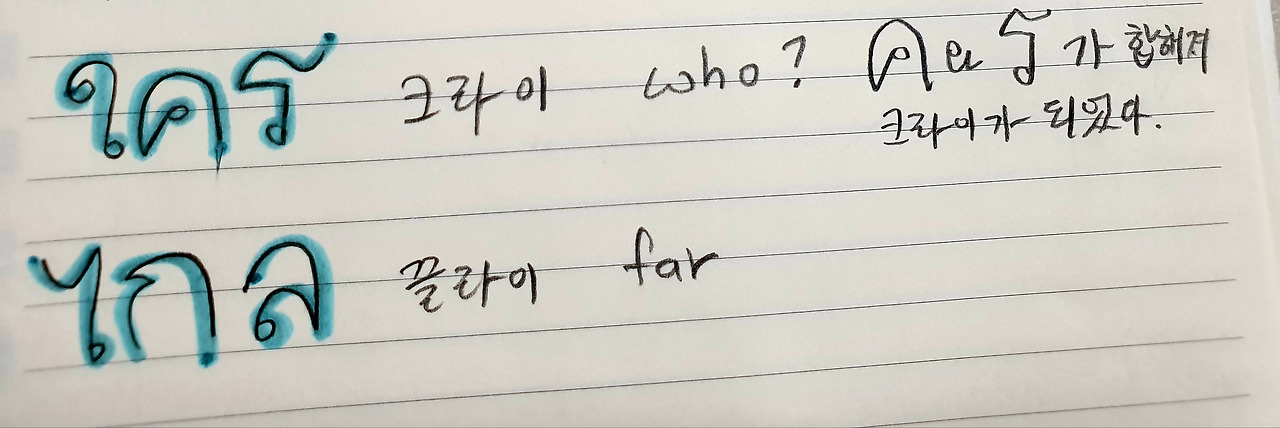 ใคร 크라이 who? ค e ร 가 합해져
크라이가 되었다.
ไกล 끌라이 far